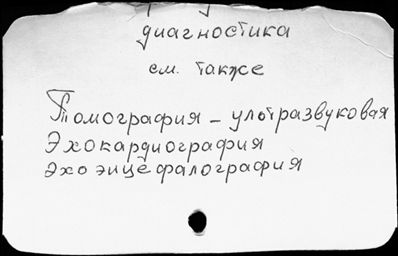 диагностика
см. также
Томография – ультразвуковая
Эхокардиография
Эхоэнцефалография